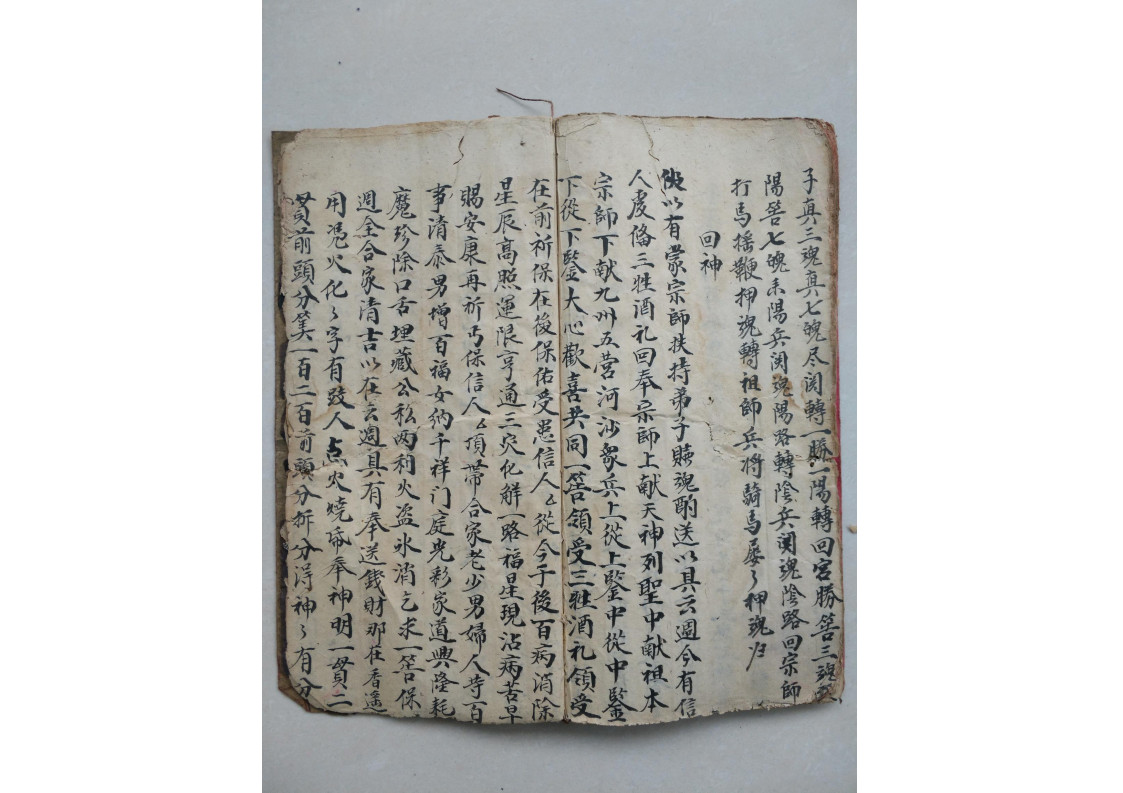 子真三魂真七魄尽関轉一勝一陽轉回宮勝筶三魂
陽筶七魄未陽兵関魂陽路轉陰兵関魂陰路回宗師
打馬摇鞭押魂轉祖師兵将騎馬屡〻押魂归
回神
伏以有蒙宗師扶持弟子賍魂酌送以具云週今有信
人虔俻三牲酒礼回奉宗師上献天神列聖中献祖本
宗師下献九州五营河沙衆兵上從上鑒中從中鑒
下從下鑒大心歡喜共同一筶領受三牲酒礼領受
在前祈保在後保佑受患信人厶從今于後百病消除
星辰高照運限亨通三灾化解一路福星現沾病苦早
賜安康再祈丐保信人厶頂帶合家老少男婦人等百
事清泰男增百福女納千祥门庭光彩家道興隆耗
魔珍除口舌埋藏公私两利火盗氷消乞求一筶保
週全合家清吉以在云週具有奉送錢財那在香遙
用凭火化〻字有跤人点火燒帋奉神明一貫二
貫前頭分筭一百二百前頭分拆分得神〻有分